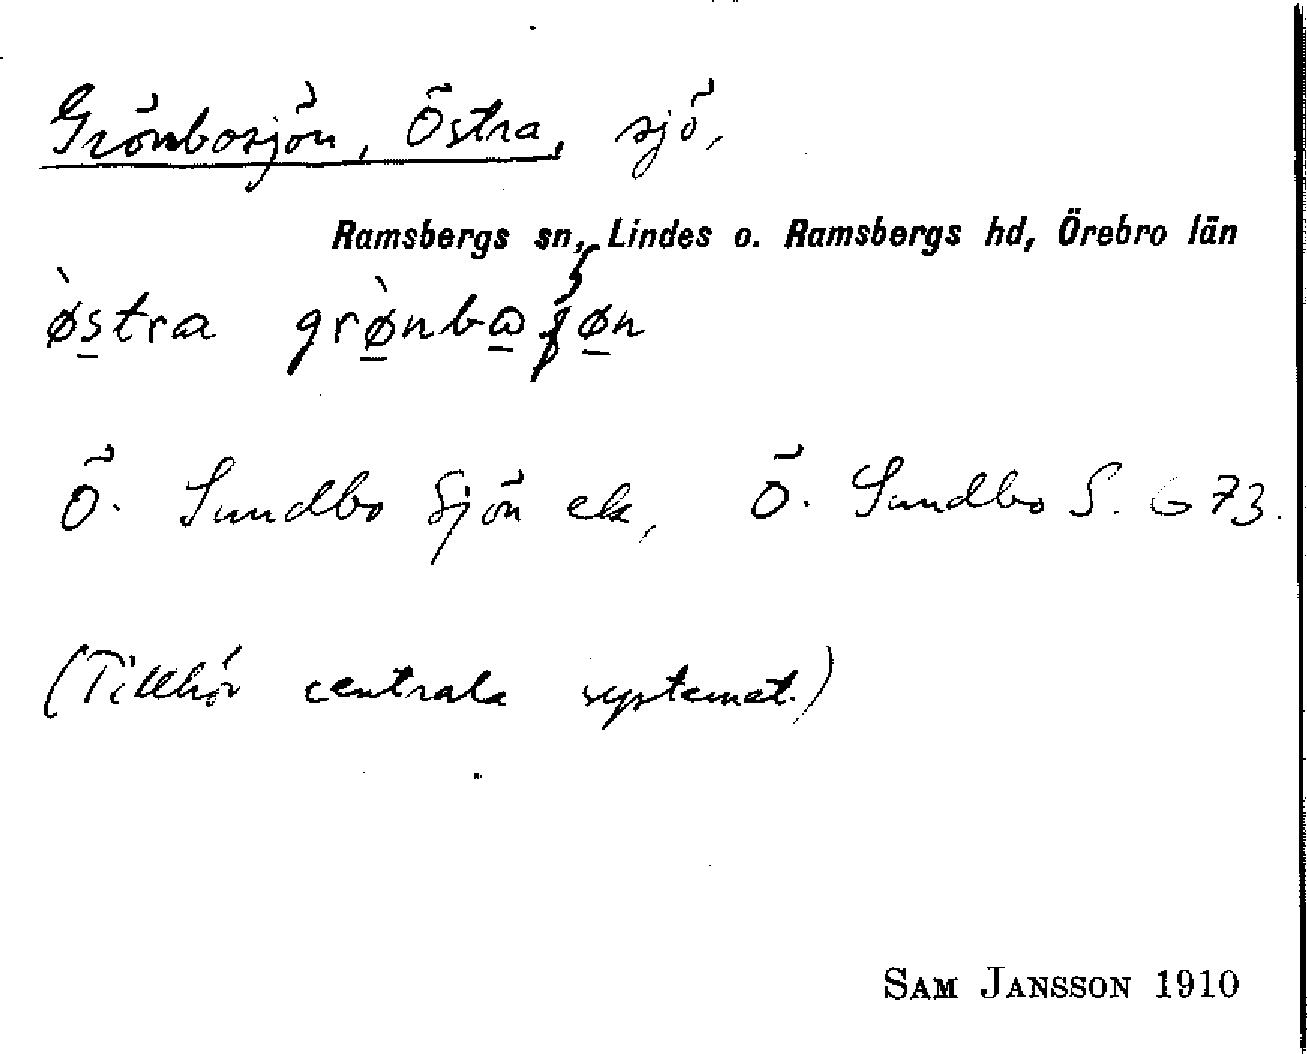 Grönbosjön, Östra, sjö,
Ramsbergs sn, Lindes o. Ramsbergs hd, Örebro län
ø̀s̲tra grø̲̀nbɷ̲ʃø̲n
Ö. Sundbo Sjön ek, Ö. Sundbo S. G 73.
(Tillhör centrala systemet.)
SAM JANSSON 1910